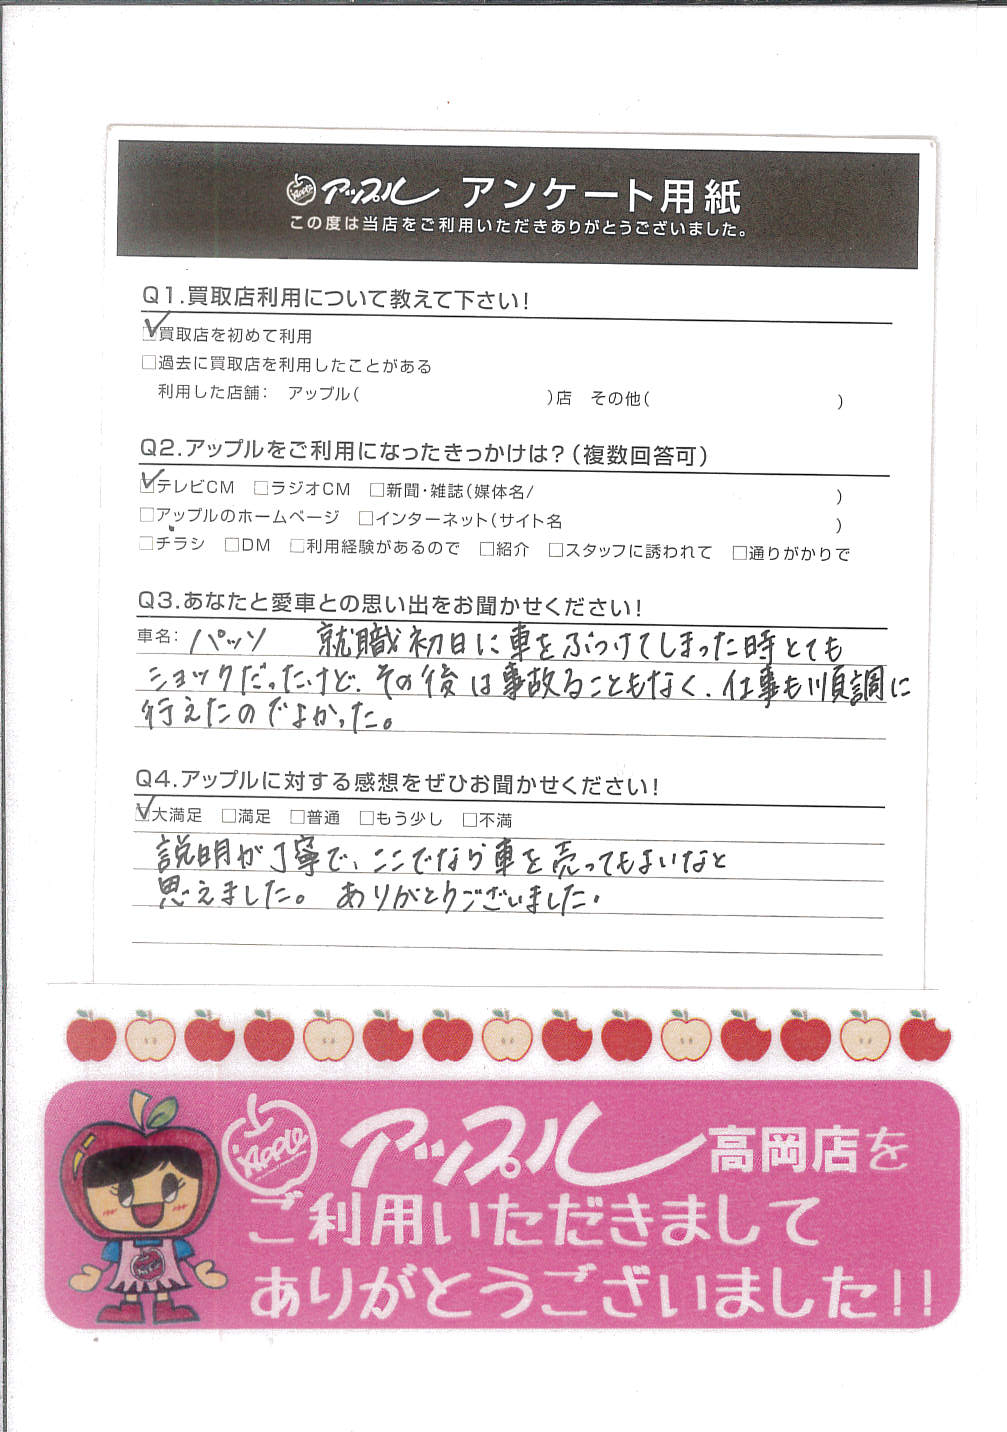 APPLE アップル アンケート用紙
この度は当店をご利用いただきありがとうございました。
Q1.買取店利用について教えて下さい!
☑買取店を初めて利用
□過去に買取店を利用したことがある
利用した店舗: アップル( )店 その他( )
Q2.アップルをご利用になったきっかけは?(複数回答可)
☑テレビCM □ラジオCM □新聞・雑誌(媒体名/ )
□アップルのホームページ □インターネット(サイト名 )
□チラシ □DM □利用経験があるので □紹介 □スタッフに誘われて □通りがかりで
Q3.あなたと愛車との思い出をお聞かせください!
車名: パッソ 就職初日に車をぶつけてしまった時とても
ショックだったけど、その後は事故ることもなく、仕事も順調に
行えたのでよかった。
Q4.アップルに対する感想をぜひお聞かせください!
☑大満足 □満足 □普通 □もう少し □不満
説明が丁寧で、ここでなら車を売ってもよいなと
思えました。ありがとうございました。
APPLE アップル 高岡店を
ご利用いただきまして
ありがとうございました!!